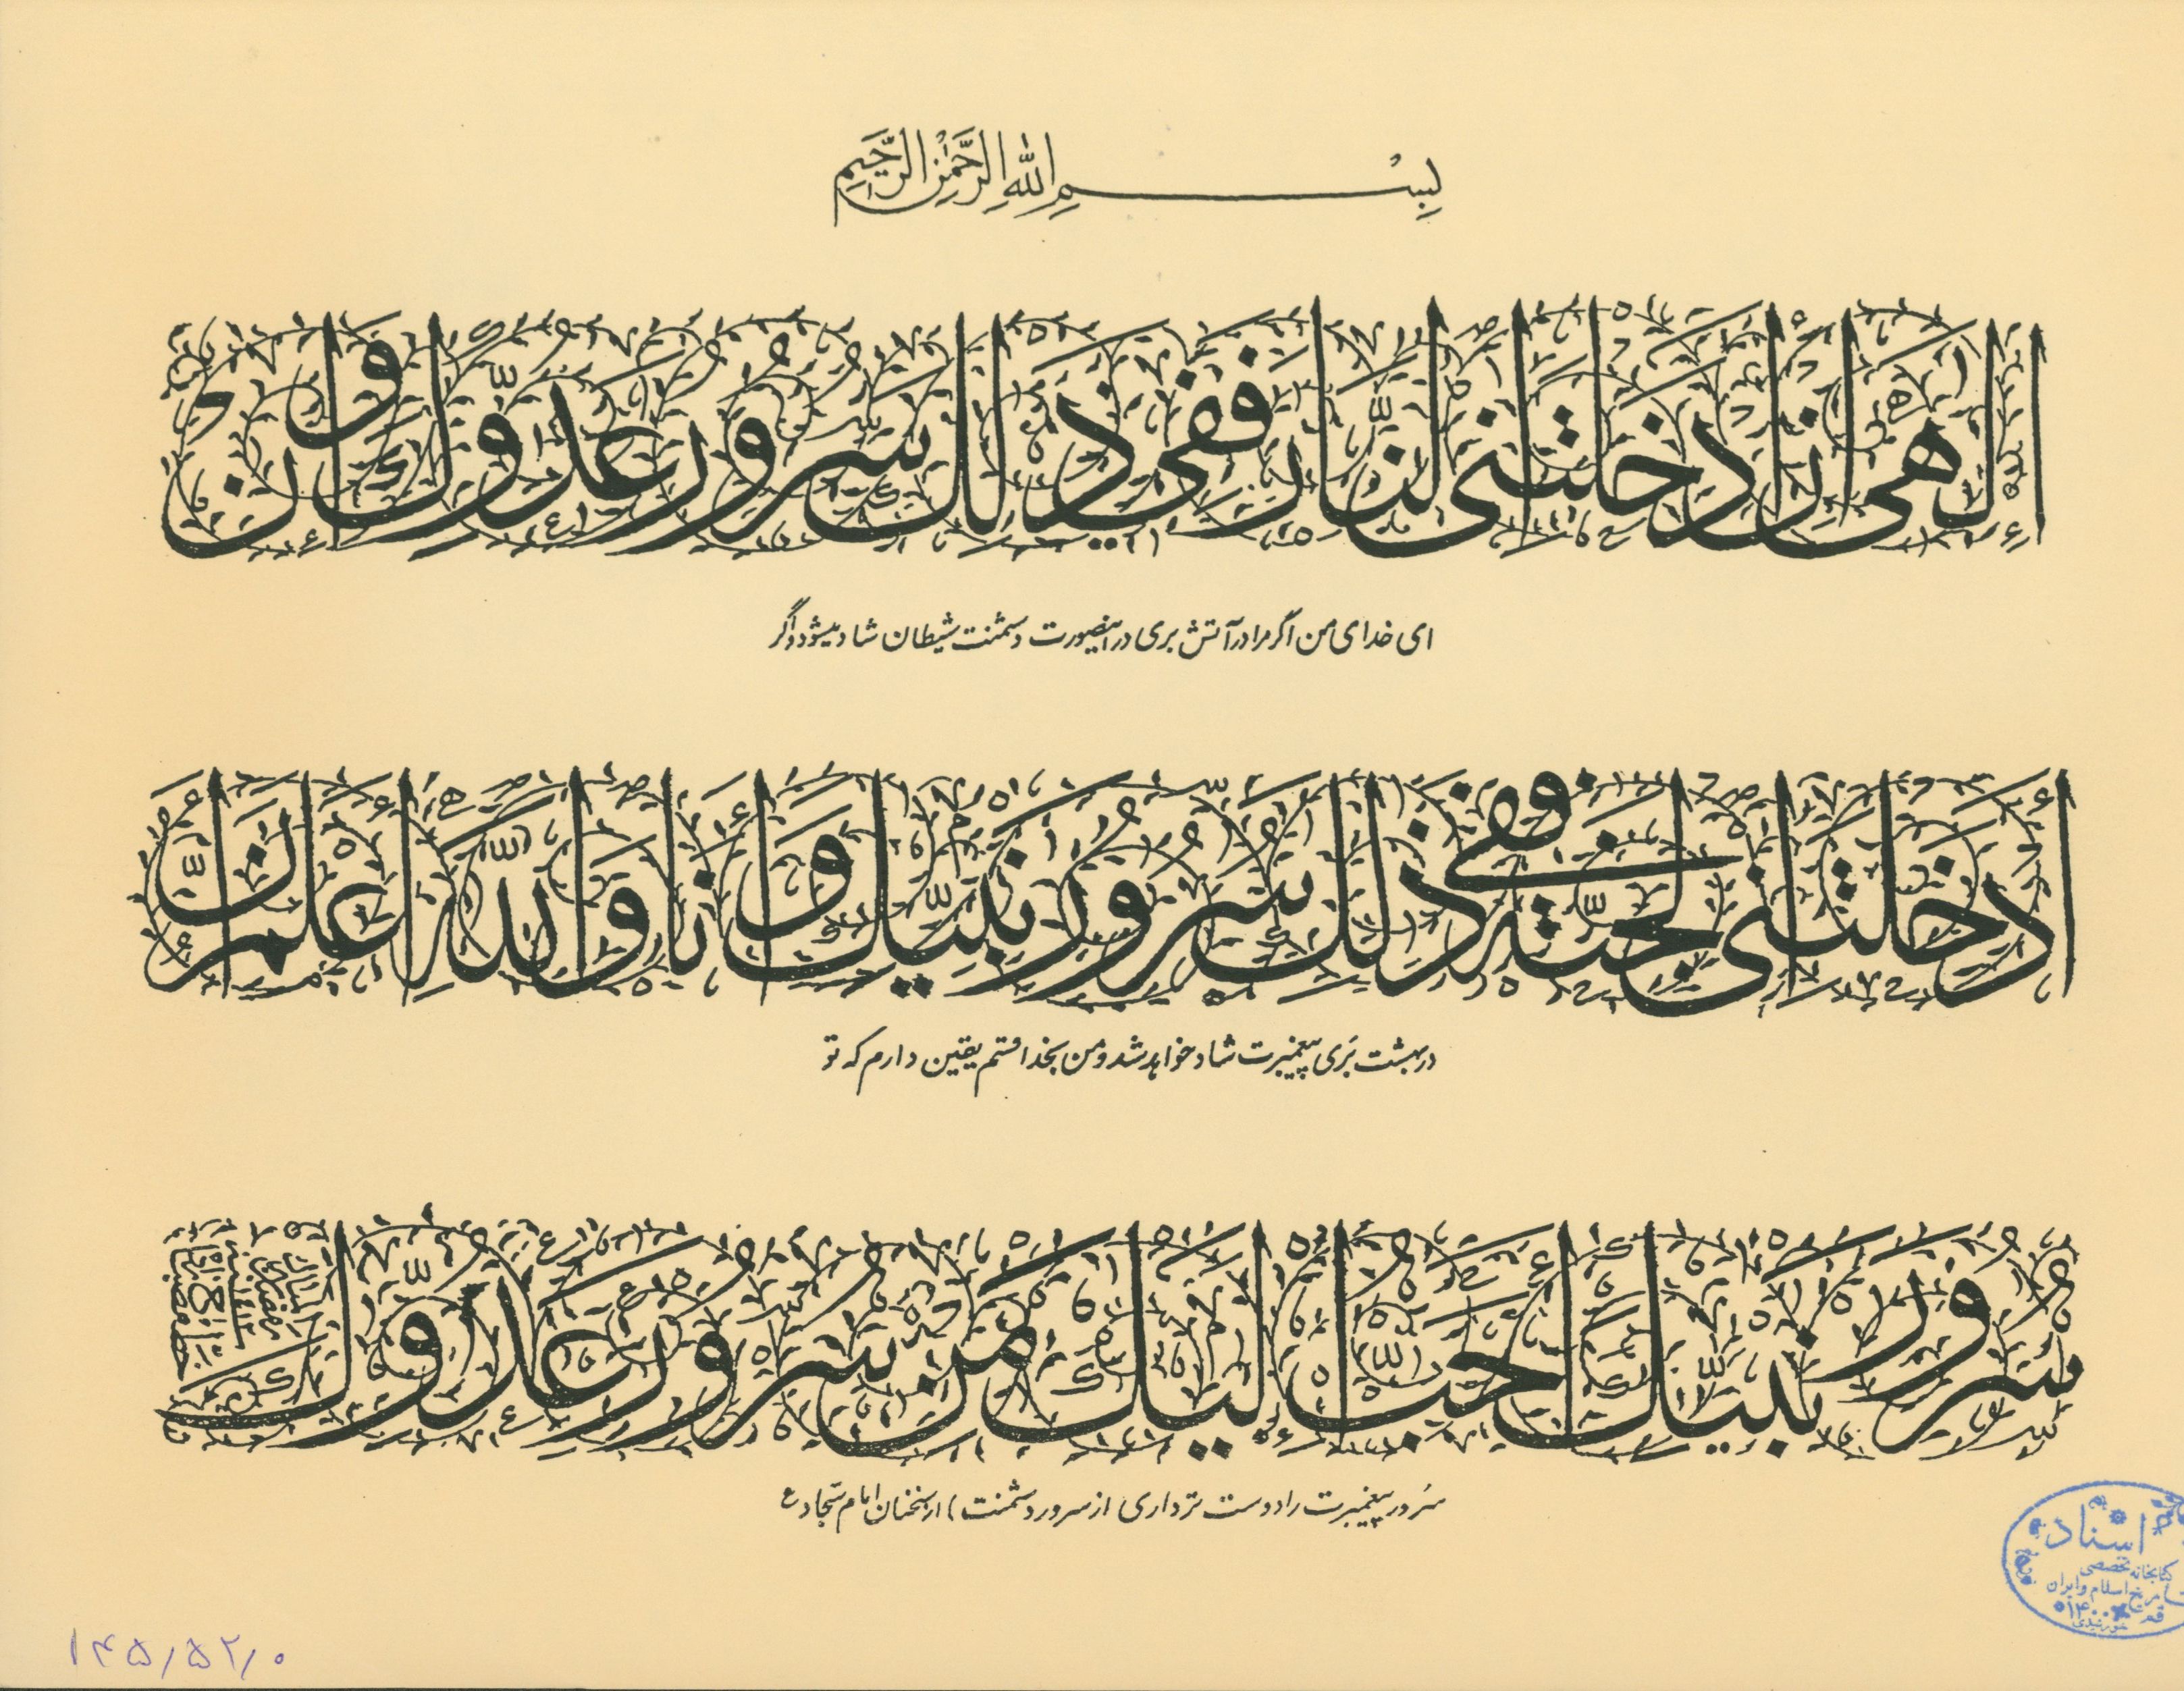 بِسْمِ اللهِ الرَّحْمٰنِ الرَّحِیمِ
الهی ان ادخلتنی النار ففی ذلک سرور عدوّک و ان
ای خدای من اگر مرا در آتش بری در اینصورت دشمنت شیطان شاد میشود و اگر
ادخلتنی الجنة ففی ذلک سرور نبیک و انا و اللهِ اعلم ان
در بهشت بَری پیغمبرت شاد خواهد شد و من بخدا قسم یقین دارم که تو
سرور نبیک احب الیک من سرور عدوک
سُرور پیغمبرت را دوست تر داری از سرور دشمنت) از سخنان امام سجاد ع
اسناد
کتابخانه تخصصی
تاریخ اسلام و ایران
قم
۱۴۵/۵۲/۰